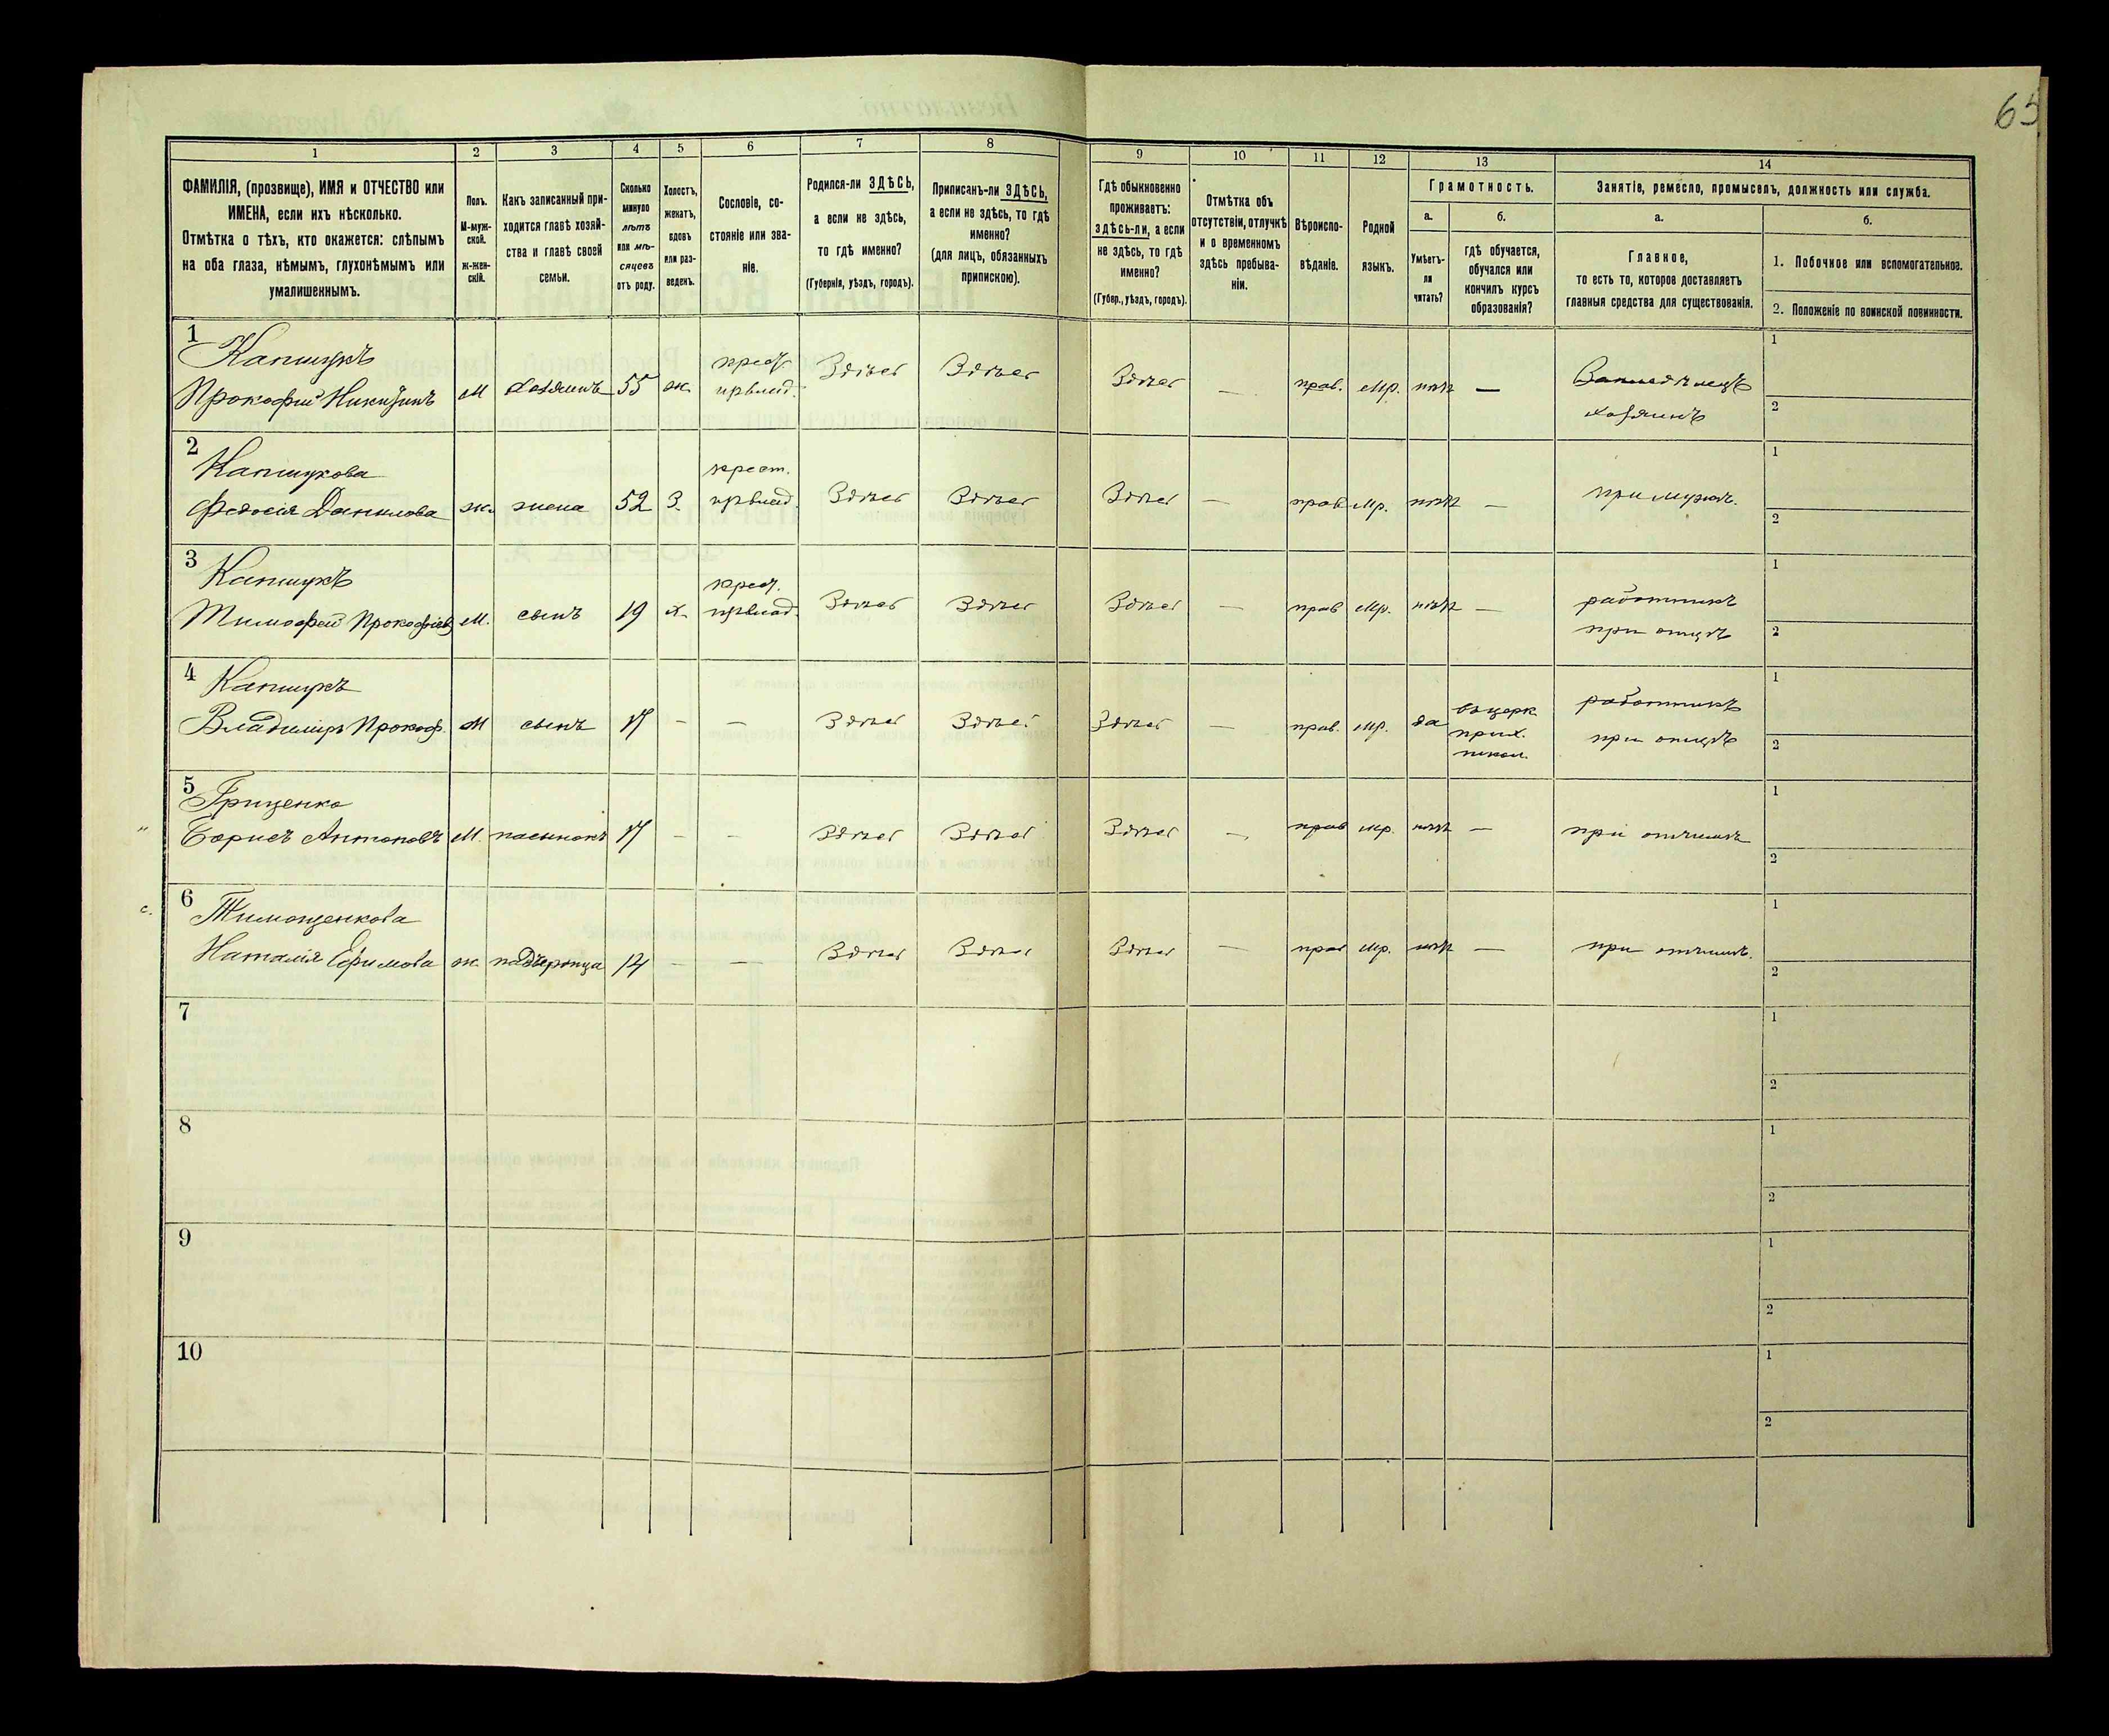 65
1
2
3
4
5
6
7
8
9
10
11
12
13
14
ФАМИЛІЯ, (прозвище), ИМЯ и ОТЧЕСТВО или
ИМЕНА, если ихъ нѣсколько.
Отмѣтка о тѣхъ, кто окажется: слѣпымъ
на оба глаза, нѣмымъ, глухонѣмымъ или
умалишеннымъ.
Полъ.
М-муж-
ской.
ж-жен-
скій.
Какъ записанный при-
ходится главѣ хозяй-
ства и главѣ своей
семьи.
Сколько
минуло
лѣтъ
или мѣ-
сяцевъ
отъ роду.
Холостъ,
женатъ,
вдовъ
или раз-
веденъ.
Сословіе, со-
стояніе или зва-
ніе.
Родился-ли ЗДѢСЬ,
а если не здѣсь,
то гдѣ именно?
(Губернія, уѣздъ, городъ).
Приписанъ-ли ЗДѢСЬ,
а если не здѣсь, то гдѣ
именно?
(для лицъ, обязанныхъ
припискою).
Гдѣ обыкновенно
проживаетъ:
здѣсь-ли, а если
не здѣсь, то гдѣ
именно?
(Губер., уѣздъ, городъ).
Отмѣтка объ
отсутствіи, отлучкѣ
и о временномъ
здѣсь пребыва-
ніи.
Вѣроиспо-
вѣданіе.
Родной
языкъ.
Грамотность.
а.
б.
Умѣетъ-
ли
читать?
гдѣ обучается,
обучался или
кончилъ курсъ
образованія?
Занятіе, ремесло, промыселъ, должность или служба.
а.
б.
Главное,
то есть то, которое доставляетъ
главныя средства для существованія.
1. Побочное или вспомогательное.
2. Положеніе по воинской повинности.
1
Капшукъ
Прокофий Никитинъ
М хозяинъ 55 ж.
Здѣсь Здѣсь Здѣсь — прав. Мр. нѣт —
хозяинъ
1
2
2
Капшукова
Федосія Данилова
ж. жена 52 З.
крест.
Здѣсь Здѣсь Здѣсь — прав Мр. нѣт —
при мужѣ.
1
2
3
Капшукъ
Тимофей Прокофіев
М. сынъ 19 х.
Здѣсь Здѣсь Здѣсь — прав Мр. нѣт —
работникъ
при отцѣ
1
2
4
Капшукъ
Владиміръ Прокоф.
М сынъ 17 — —
Здѣсь Здѣсь Здѣсь — прав. Мр. да
въ церк.
прих.
школ.
работникъ
при отцѣ
1
2
5
Гриценко
Борисъ Антоновъ
М. пасынокъ 17 — —
Здѣсь Здѣсь Здѣсь — прав мр. нѣт —
при отчимѣ
1
2
с.
6
Тимощенкова
Наталія Ефимова
ж падчерица 14 — —
Здѣсь Здѣсь Здѣсь — прав Мр. нѣт —
при отчимѣ.
1
2
7
1
2
8
1
2
9
1
2
10
1
2